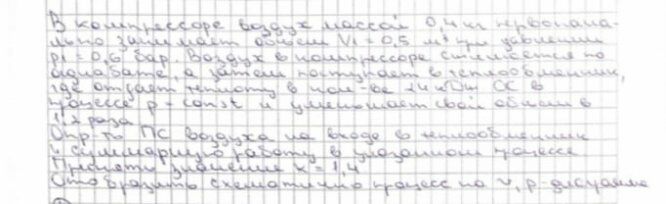 В компрессоре воздух массой 0,4 кг первонача-
льно занимает объем V1 = 0,5 м³ при давлении
p1 = 0,6 бар. Воздух в компрессоре сжимается по
адиабате, а затем поступает в теплообменник,
где отдает теплоту в кол-ве кДж ОС в
процессе p - const и уменьшает свой объем в
1.2 раза
Опр. ПС воздуха на входе в теплообменник
и суммарную работу в указанном процессе
Принять значение к = 1,4
Отобразить схематично процесс на v, p диаграмме